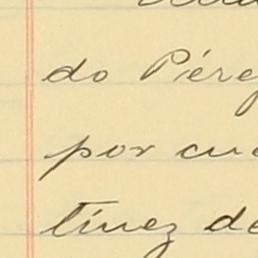 do Pérez
por cu
tínez de